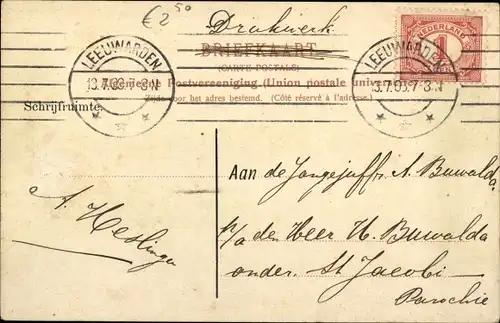 €2⁵⁰
Drukwerk
BRIEFKAART
(CARTE POSTALE)
Algemeene Postvereeniging (Union postale universelle)
Zijde voor het adres bestemd. (Côté réservé à l'adresse.)
NEDERLAND
1
LEEUWARDEN
13.7.09 7-8N
LEEUWARDEN
13.7.09 7-8N
Schrijfruimte.
A. Heslinga
Aan de Jongejuffr. A. Buwalda
p/a den Heer H. Buwalda
onder St Jacobi
Parochie